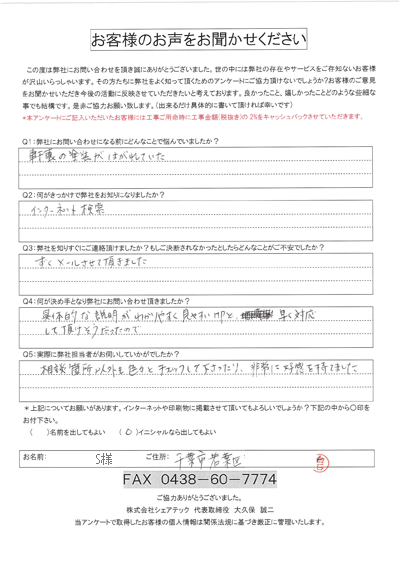 お客様のお声をお聞かせください
この度は弊社にお問い合わせを頂き誠にありがとうございます。世の中には弊社の存在やサービスをご存知ないお客様
が沢山いらっしゃいます。その方たちに弊社をよく知って頂くためのアンケートにご協力頂けないでしょうか?お客様のご意見
をお聞かせいただき今後の活動に反映させていただきたいと考えております。良かったこと、嬉しかったことどのような些細な
事でも結構です。是非ご協力お願い致します。(出来るだけ具体的に書いて頂ければ幸いです)
*本アンケートにご記入いただいたお客様には工事ご用命時に工事金額(税抜き)の2%をキャッシュバックさせていただきます。
Q1:弊社にお問い合わせになる前にどんなことで悩んでいましたか?
軒裏の塗装がはがれていた
Q2:何がきっかけで弊社をお知りになりましたか?
インターネット検索
Q3:弊社を知りすぐにご連絡頂けましたか?もしご決断されなかったとしたらどんなことがご不安でしたか?
すぐメールさせて頂きました
Q4:何が決め手となり弊社にお問い合わせ頂きましたか?
具体的な説明がわかりやすく見やすいHPと、早く対応
して頂けそうだったので
Q5:実際に弊社担当者がお伺いしていかがでしたか?
相談箇所以外も色々とチェックして下さったり、非常に好感を持てました
*上記についてお願いがあります。インターネットや印刷物に掲載させて頂いてもよろしいでしょうか?下記の中から〇印を
お付下さい。
( )名前を出してもよい (〇)イニシャルなら出してもよい
お名前: S様 ご住所: 千葉市若葉区
FAX 0438-60-7774
ご協力ありがとうございました。
株式会社シェアテック 代表取締役 大久保 誠二
当アンケートで取得したお客様の個人情報は関係法規に基づき厳正に管理いたします。